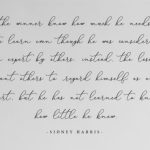 the winner knew how much he needed
to learn even though he was considered
expert by others. instead, the loser
want others to regard himself as an
rt, but he has not learned to kn
how little he knew
-SIDNEY HARRIS-